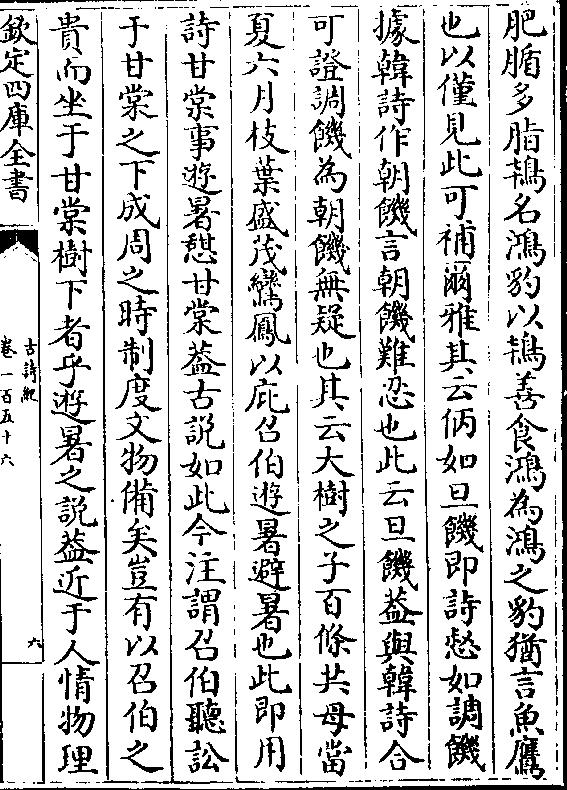 肥腯多脂鴇名鴻豹以鴇善食鴻為鴻之豹猶言魚鷹
也以僅見此可補爾雅其云侢如旦饑即詩惄如調饑
據韓詩作朝饑言朝饑難忍也此云旦饑葢與韓詩合
可證調饑為朝饑無疑也其云大樹之子百條共母當
夏六月枝葉盛茂鸞鳳以庇召伯遊暑避暑也此即用
詩甘棠事遊暑憇甘棠葢古説如此今注謂召伯聽訟
于甘棠之下成周之時制度文物備矣豈有以召伯之
貴而坐于甘棠樹下者乎遊暑之説葢近于人情物理
欽定四庫全書
古詩紀
卷一百五十六
六